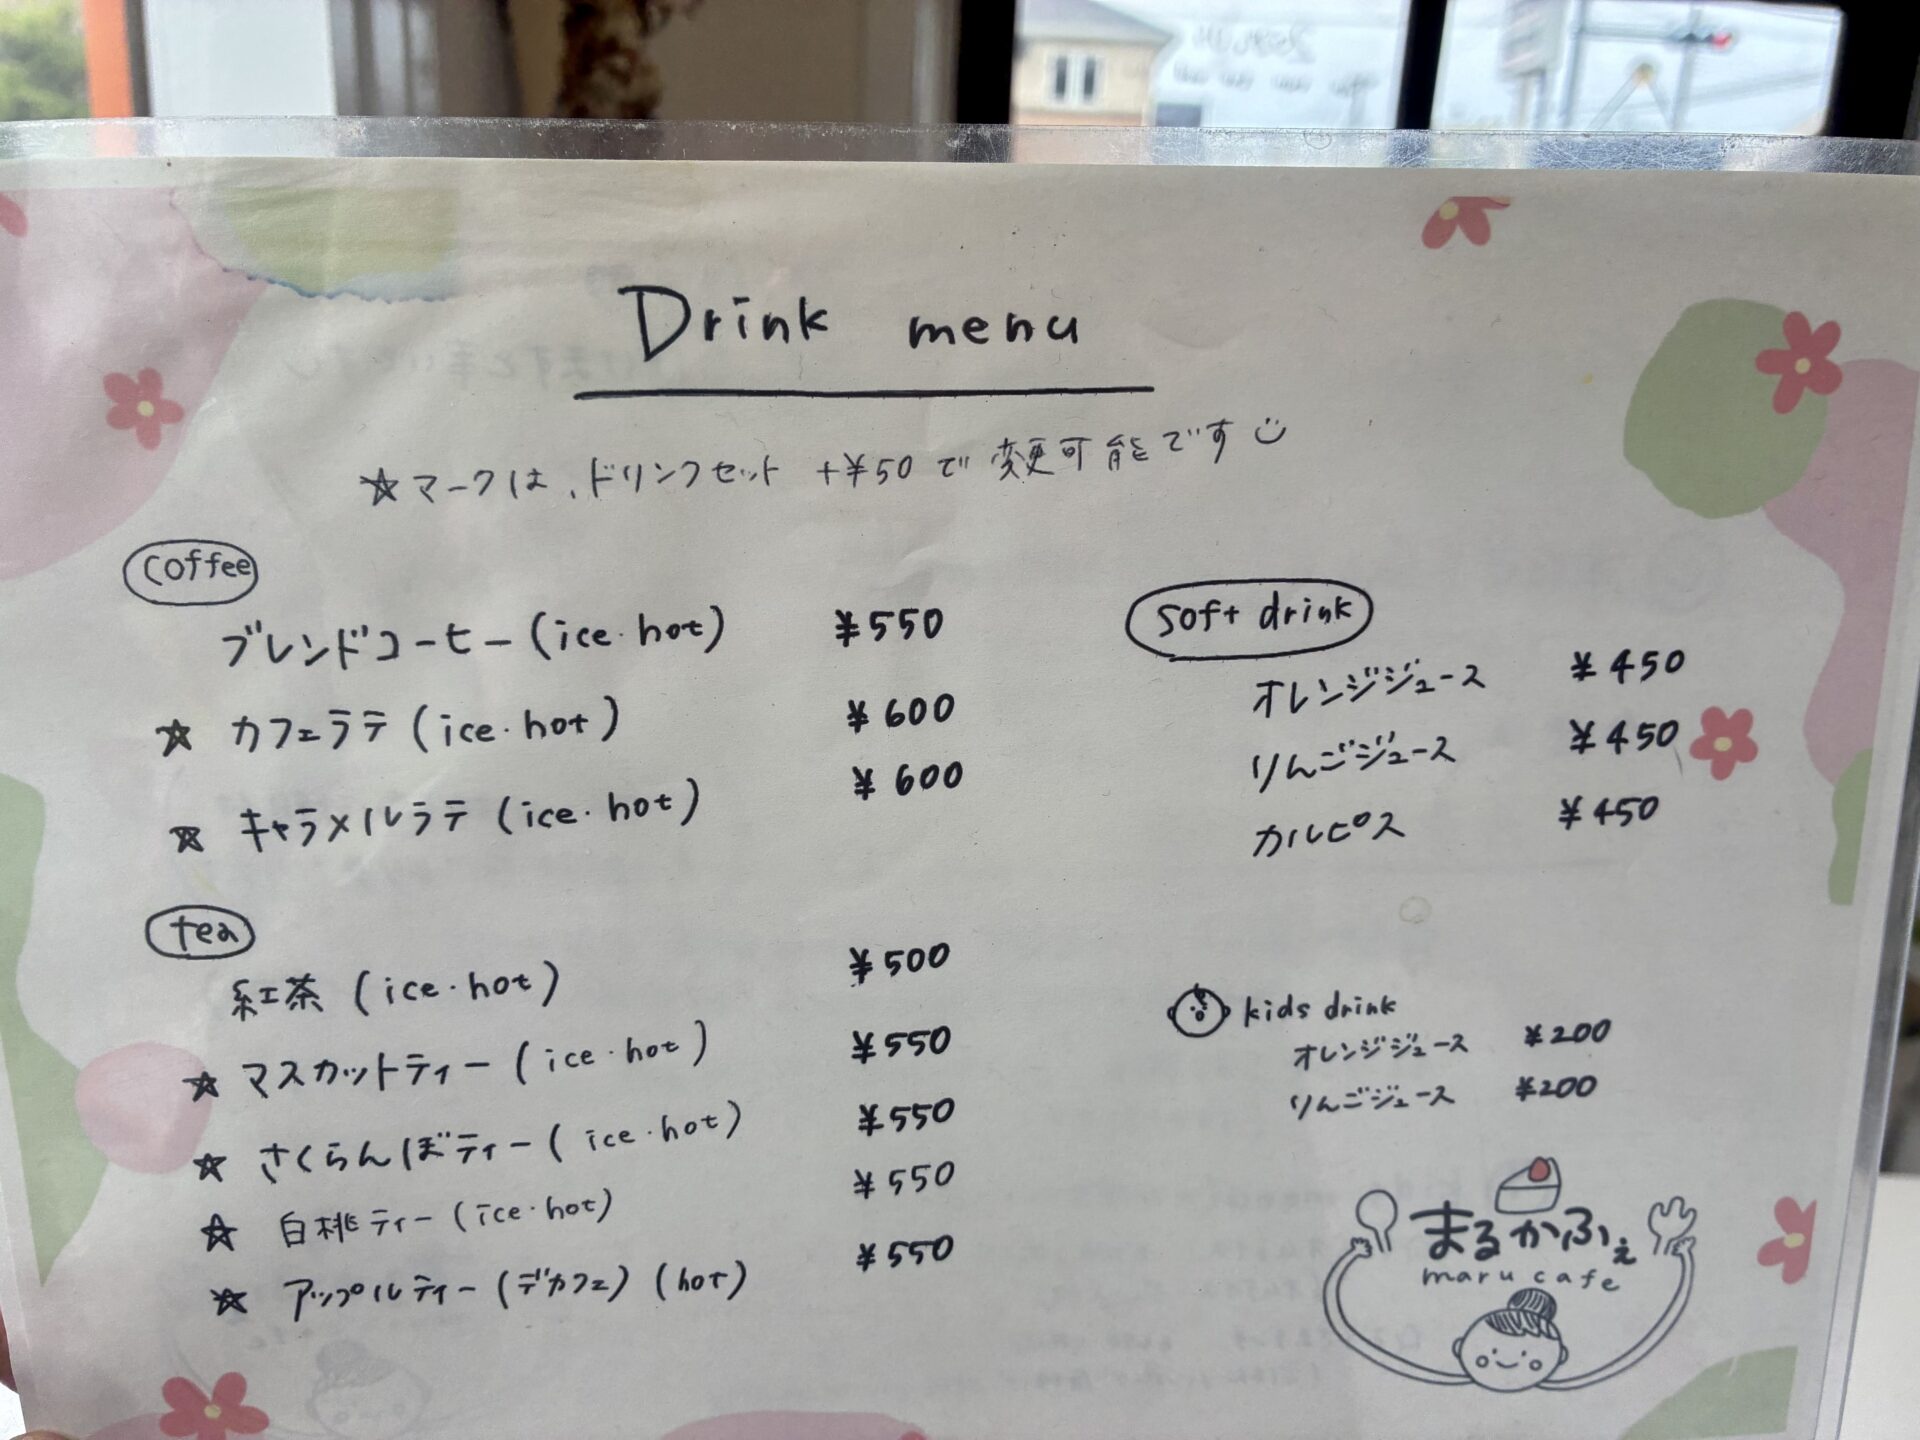 Drink menu
☆マークは、ドリンクセット +¥50で変更可能です
coffee
ブレンドコーヒー(ice・hot) ¥550
☆ カフェラテ(ice・hot) ¥600
☆ キャラメルラテ(ice・hot) ¥600
tea
紅茶(ice・hot) ¥500
☆ マスカットティー(ice・hot) ¥550
☆ さくらんぼティー(ice・hot) ¥550
☆ 白桃ティー(ice・hot) ¥550
☆ アップルティー(デカフェ)(hot) ¥550
soft drink
オレンジジュース ¥450
りんごジュース ¥450
カルピス ¥450
kids drink
オレンジジュース ¥200
りんごジュース ¥200
まるかふぇ
maru cafe